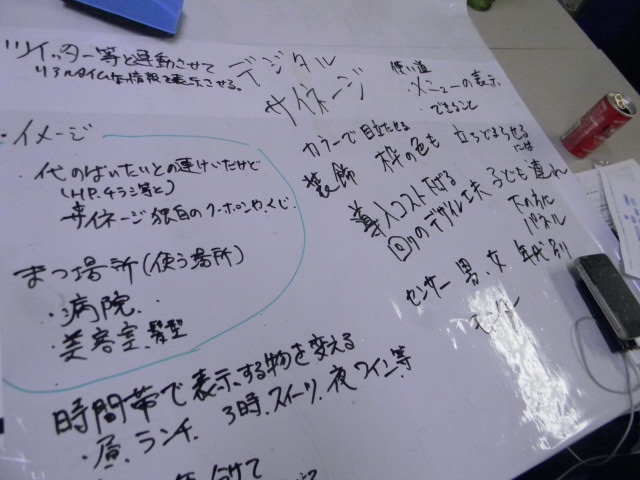 ツイッター等と連動させて
リアルタイムな情報を表示させる。
デジタル
サイネージ
使い道
・メニューの表示
できること
・イメージ
・代のばいたいとの連けいだけど
(HP.チラシ等と)
サイネージ独自のクーポンや、くじ
まつ場所(使う場所)
・病院、
・美容室、髪型
カラーで目立たせる
装飾 枠の色も 立ちどまらせる
には
導入コスト下げる
回りのデザイン工夫 子ども連れ
下の方に
パネル
センサー 男、女 年代別
時間帯で表示する物を変える
・昼、ランチ、 3時、スイーツ、夜ワイン等